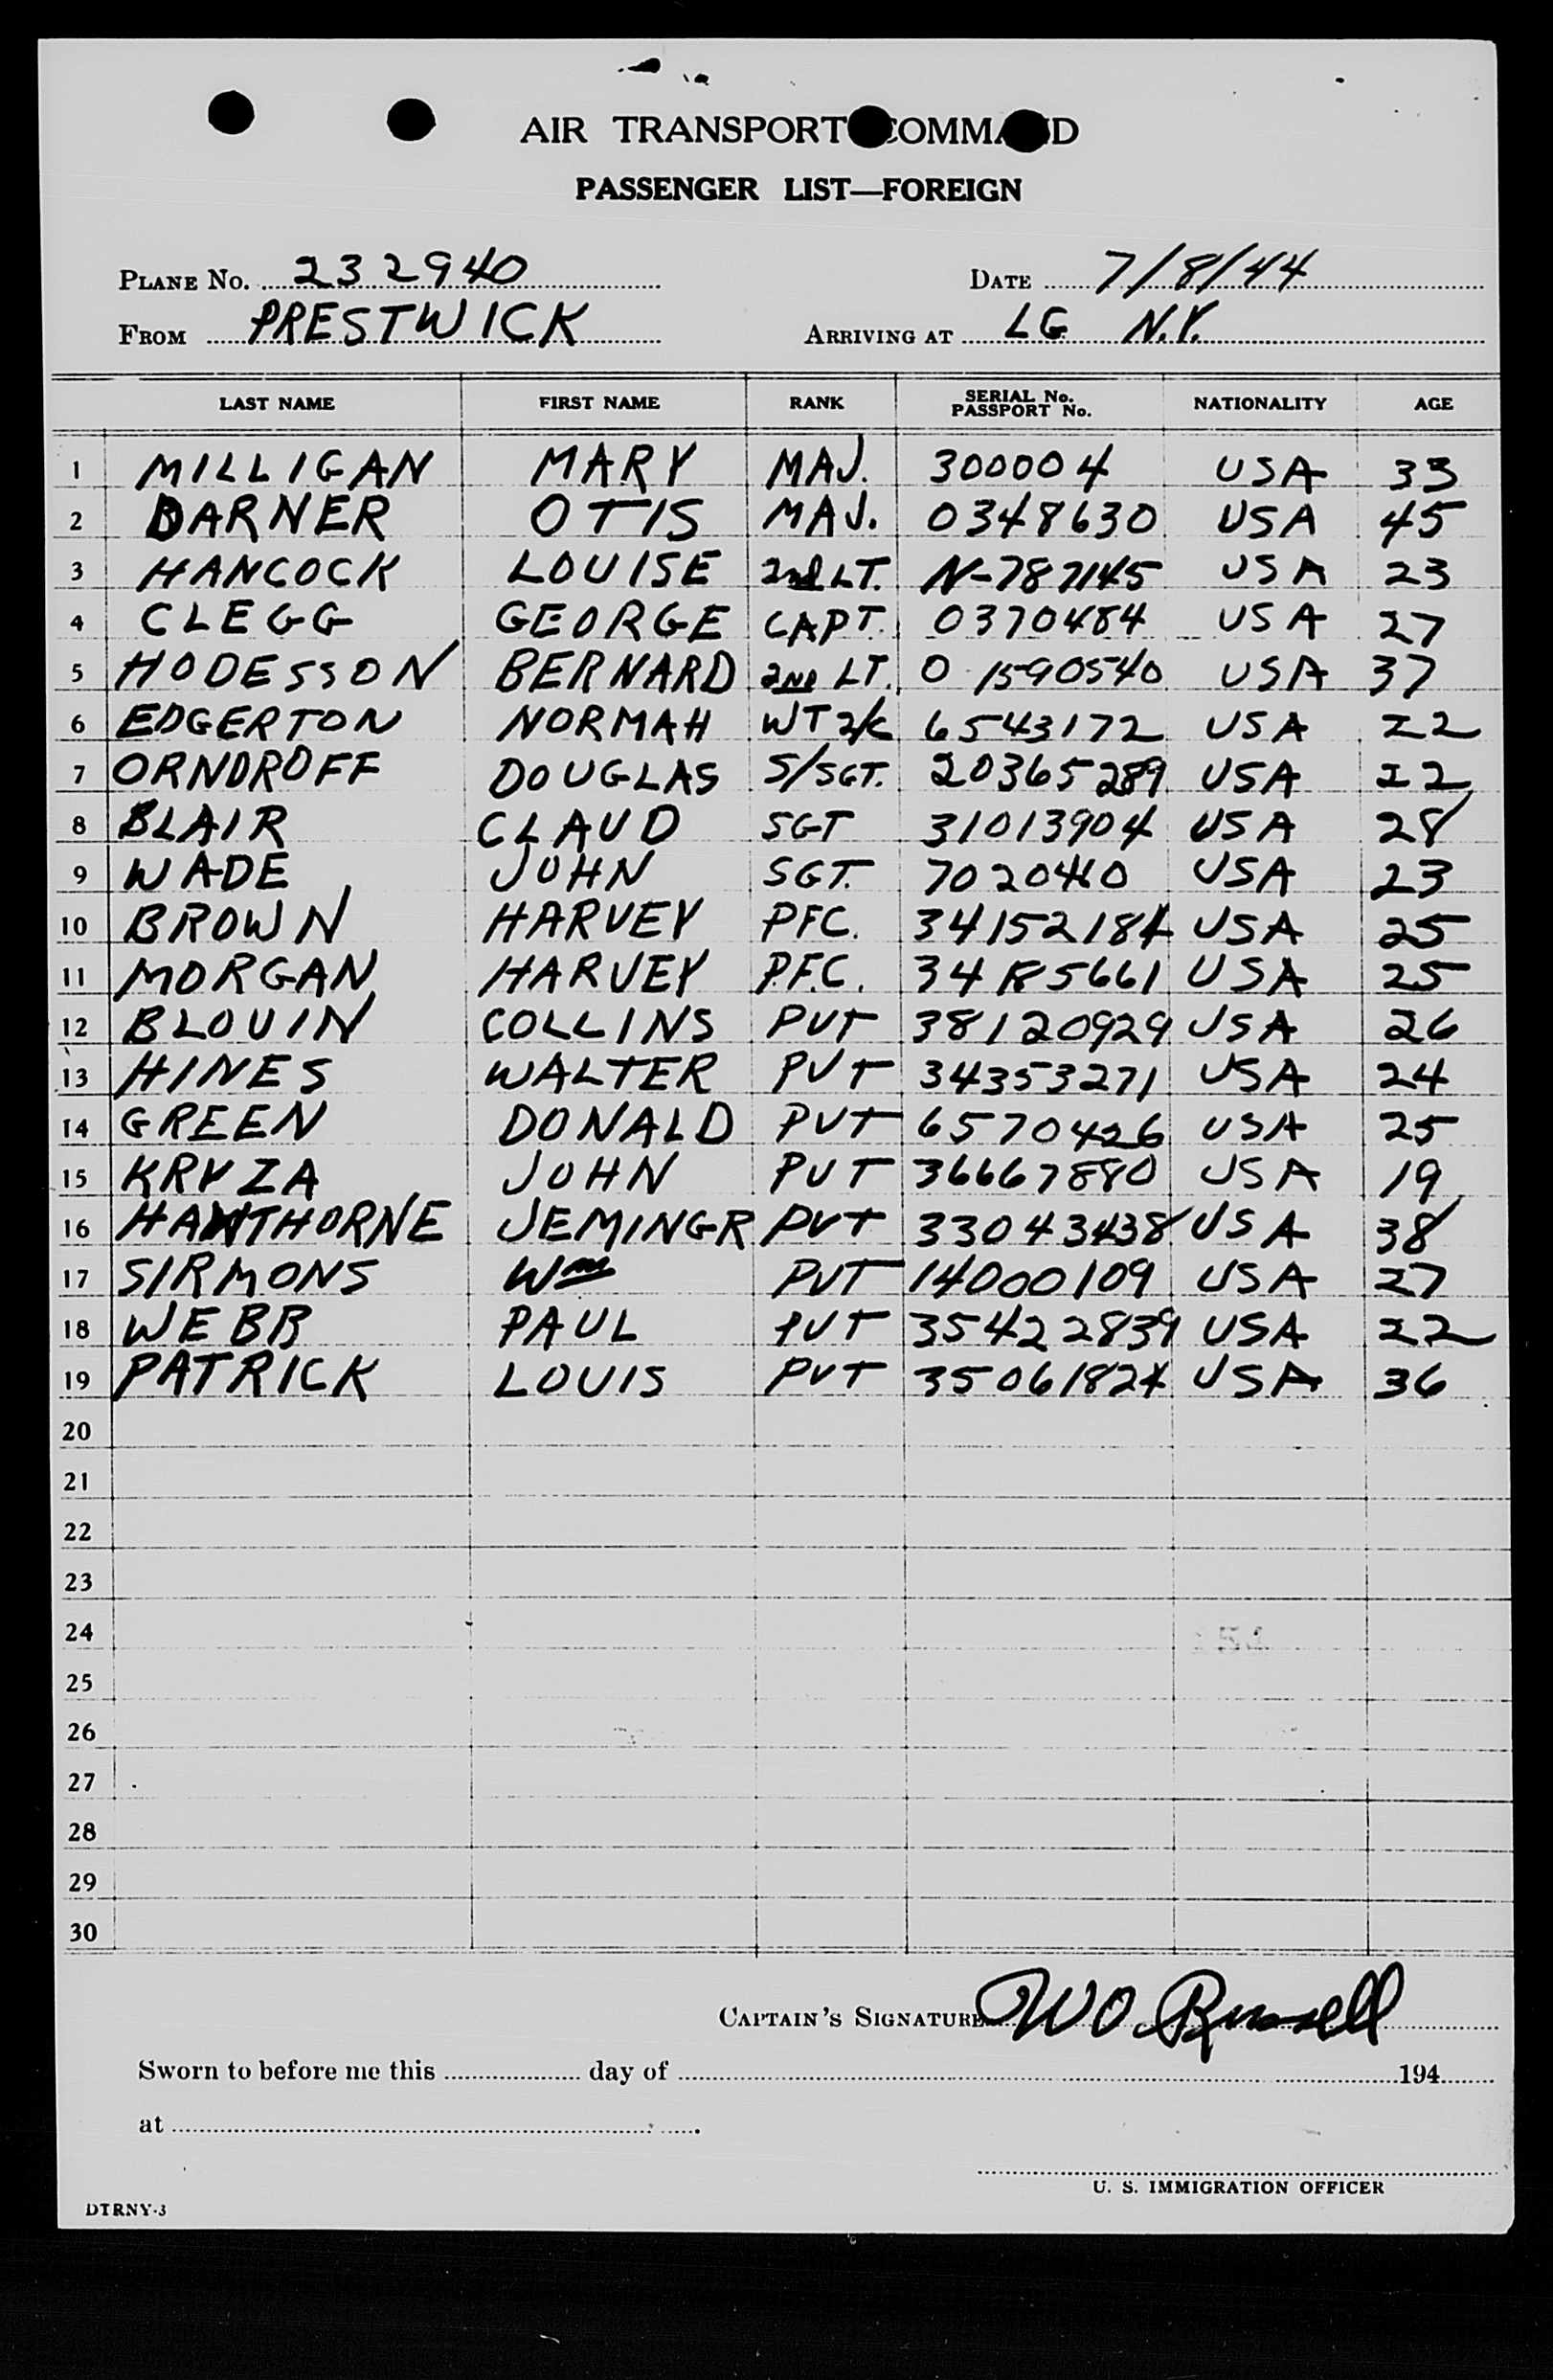 AIR TRANSPORT COMMAND
PASSENGER LIST—FOREIGN
PLANE No. 232940 DATE 7/8/44
FROM PRESTWICK ARRIVING AT LG N.Y.
LAST NAME FIRST NAME RANK SERIAL No. PASSPORT No. NATIONALITY AGE
1 MILLIGAN MARY MAJ. 300004 USA 33
2 DARNER OTIS MAJ. 0348630 USA 45
3 HANCOCK LOUISE 2nd LT. N-787145 USA 23
4 CLEGG GEORGE CAPT. 0370484 USA 27
5 HODESSON BERNARD 2ND LT. O 1590540 USA 37
6 EDGERTON NORMAH WT 2/c 6543172 USA 22
7 ORNDROFF DOUGLAS S/SGT. 20365289 USA 22
8 BLAIR CLAUD SGT 31013904 USA 28
9 WADE JOHN SGT. 7020410 USA 23
10 BROWN HARVEY PFC. 34152184 USA 25
11 MORGAN HARVEY P.F.C. 34185661 USA 25
12 BLOUIN COLLINS PVT 38120929 USA 26
13 HINES WALTER PVT 34353271 USA 24
14 GREEN DONALD PVT 6570426 USA 25
15 KRYZA JOHN PVT 36667880 USA 19
16 HAWTHORNE JEMINGR PVT 33043438 USA 38
17 SIRMONS Wm PVT 14000109 USA 27
18 WEBB PAUL PVT 35422839 USA 22
19 PATRICK LOUIS PVT 35061824 USA 36
20
21
22
23
24
25
26
27
28
29
30
CAPTAIN'S SIGNATURE WO Russell
Sworn to before me this day of 194
at
U. S. IMMIGRATION OFFICER
DTRNY-3